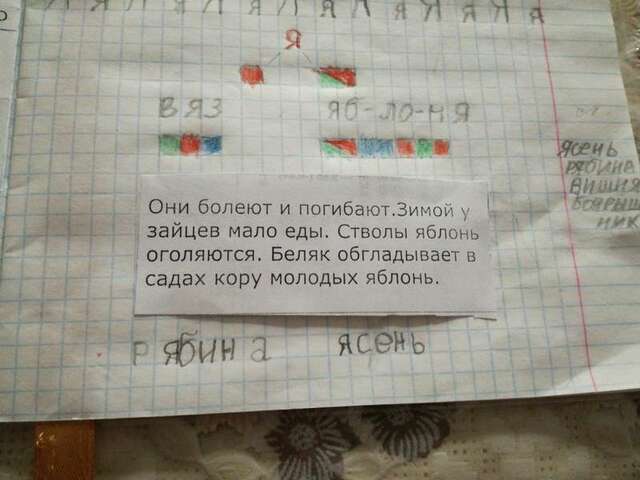 Я
ВЯЗ ЯБ-ЛО-НЯ
ясень
рябина
вишня
боярыш
ник
Они болеют и погибают.Зимой у
зайцев мало еды. Стволы яблонь
оголяются. Беляк обгладывает в
садах кору молодых яблонь.
рябина ясень